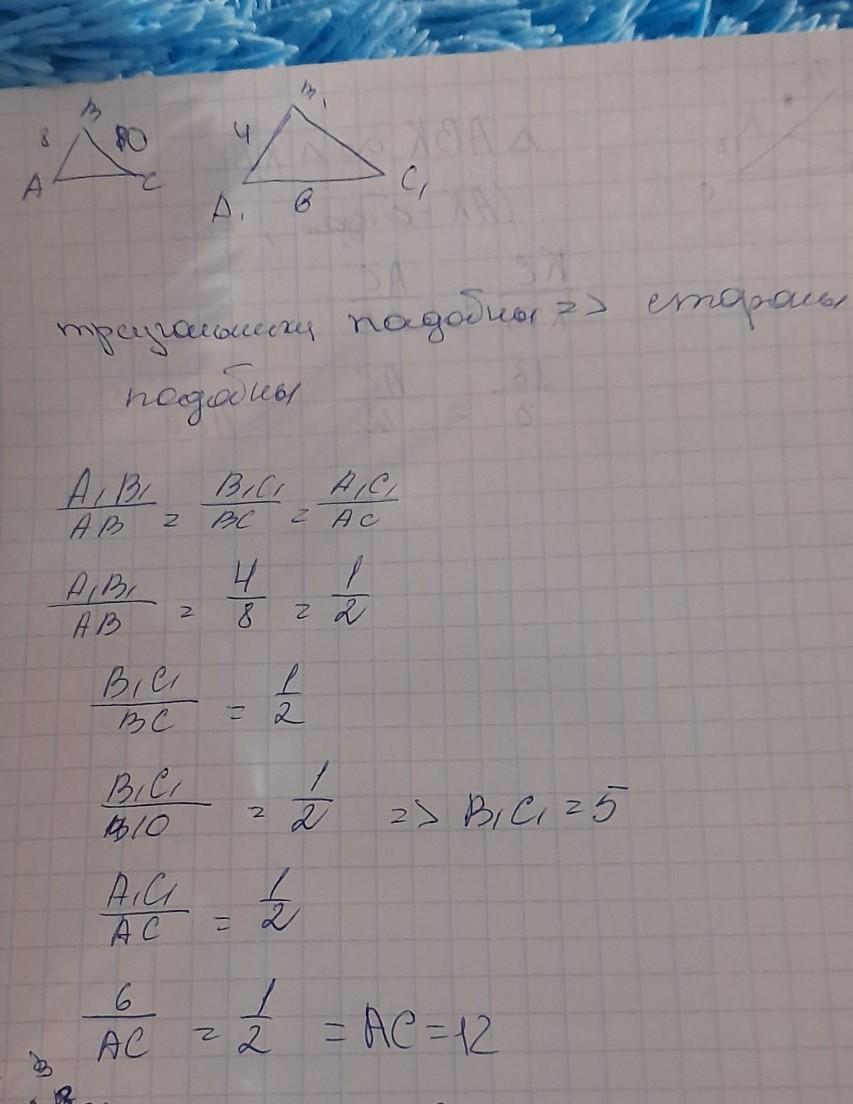 B B₁
8 10 4
A C A₁ 6 C₁
треугольники подобны => стороны
подобны
A₁B₁/AB = B₁C₁/BC = A₁C₁/AC
A₁B₁/AB = 4/8 = 1/2
B₁C₁/BC = 1/2
B₁C₁/10 = 1/2 => B₁C₁ = 5
A₁C₁/AC = 1/2
6/AC = 1/2 = AC = 12